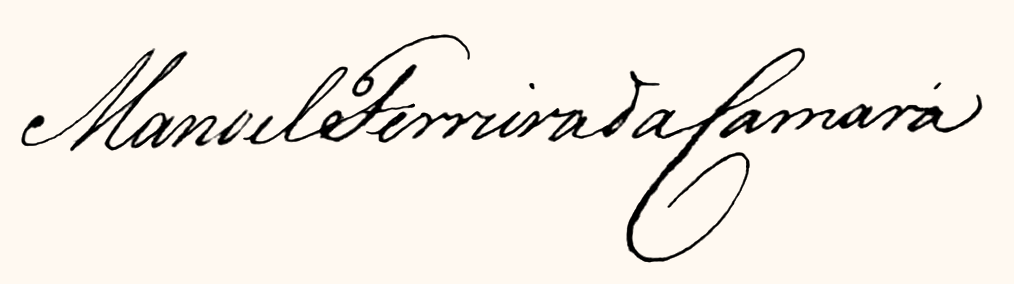 Manoel Ferreira da Camara